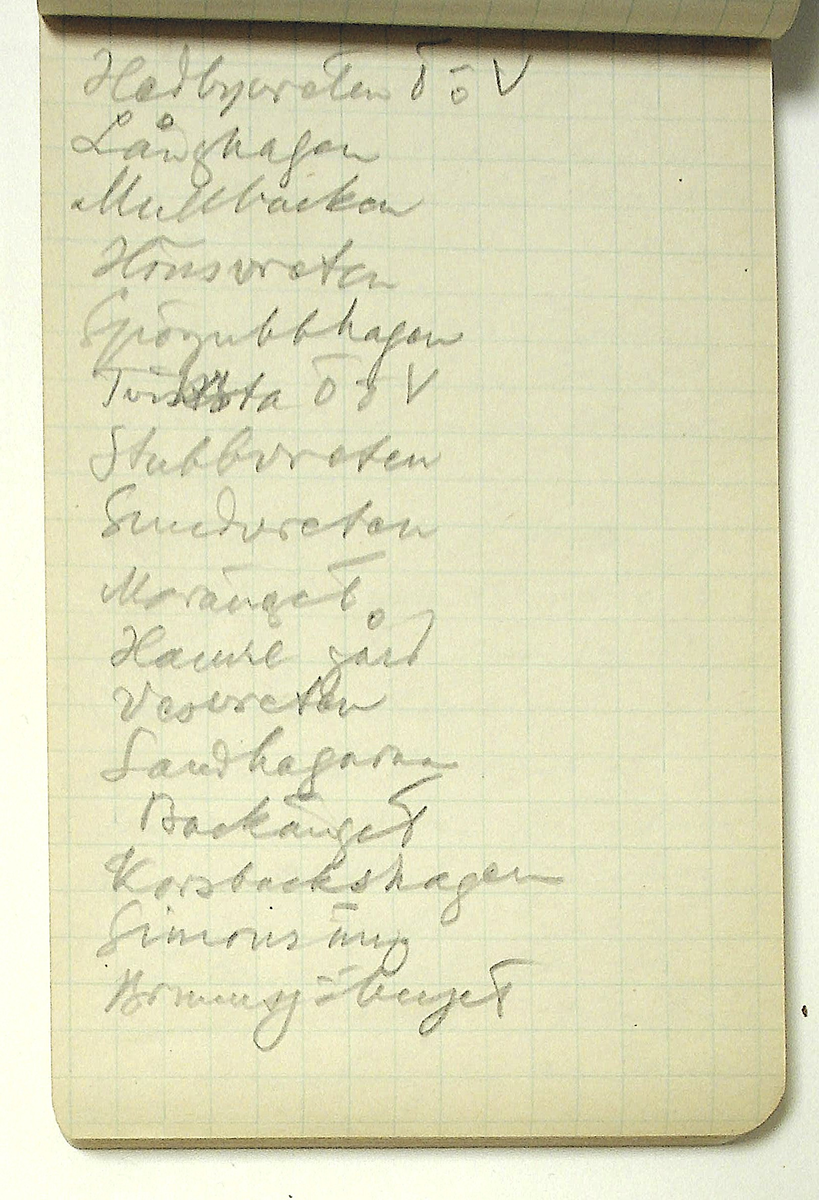 Hedbyvreten Ö o V
Långhagen
Mullbacken
Hönsvreten
Sjögubbhagen
Tvista Ö o V
Stubbvreten
Sundvreten
Moränget
Hamre gård
Vesvreten
Sandhagarna
Backänget
Korsbackshagen
Simonsäng